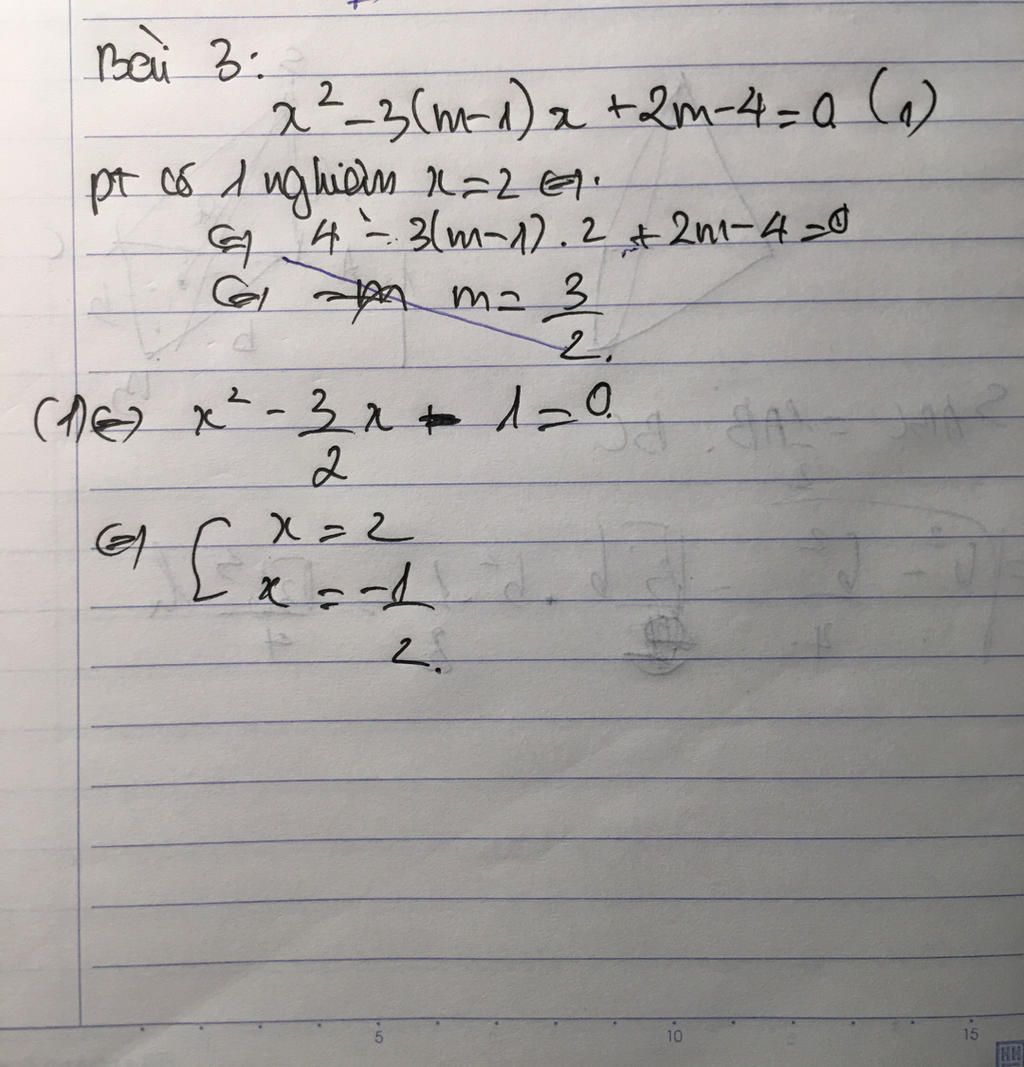 Bài 3:
x² - 3(m-1)x + 2m - 4 = 0 (1)
pt có 1 nghiệm x = 2 ⇔.
⇔ 4 - 3(m-1).2 + 2m - 4 = 0
⇔ m = 3/2.
(1) ⇔ x² - 3/2 x - 1 = 0.
⇔ [ x = 2
x = -1/2.
5 10 15